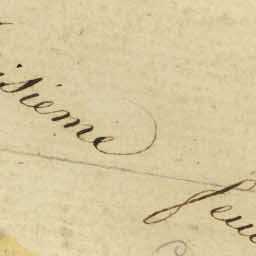 isieme
feu